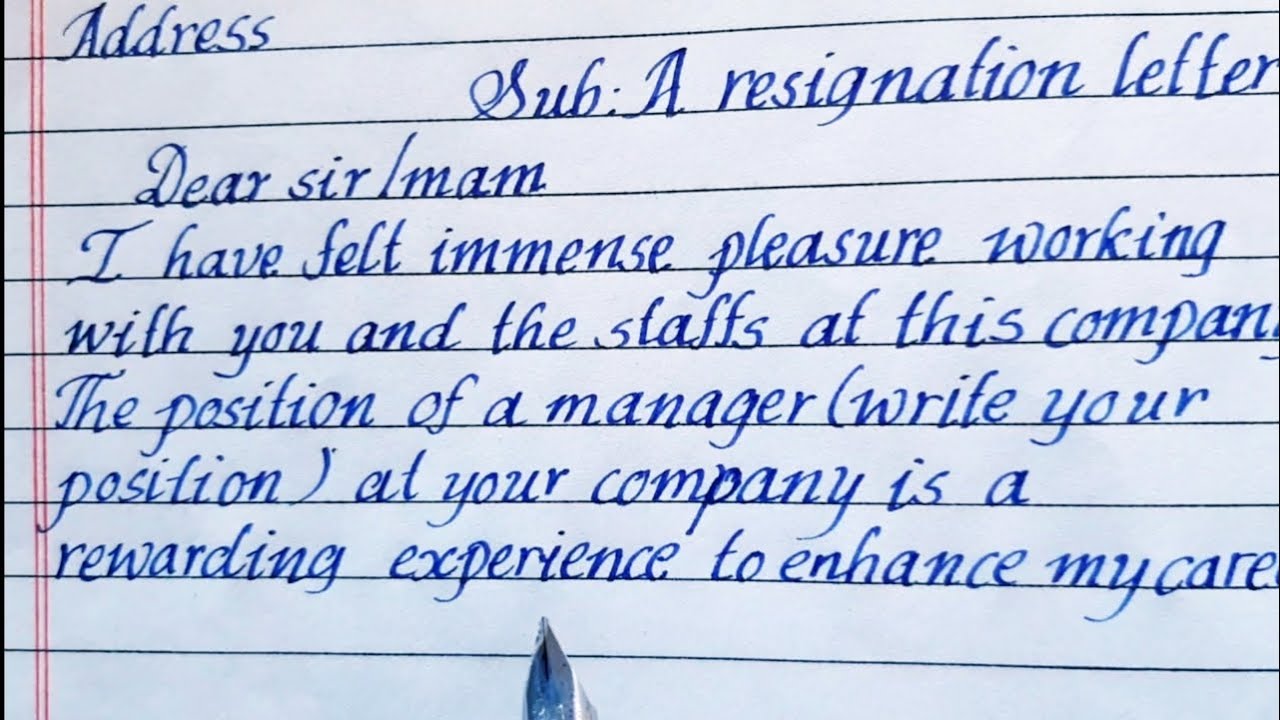 Address
Sub: A resignation letter
Dear sir/mam
I have felt immense pleasure working
with you and the staffs at this company
The position of a manager (write your
position) at your company is a
rewarding experience to enhance my caree